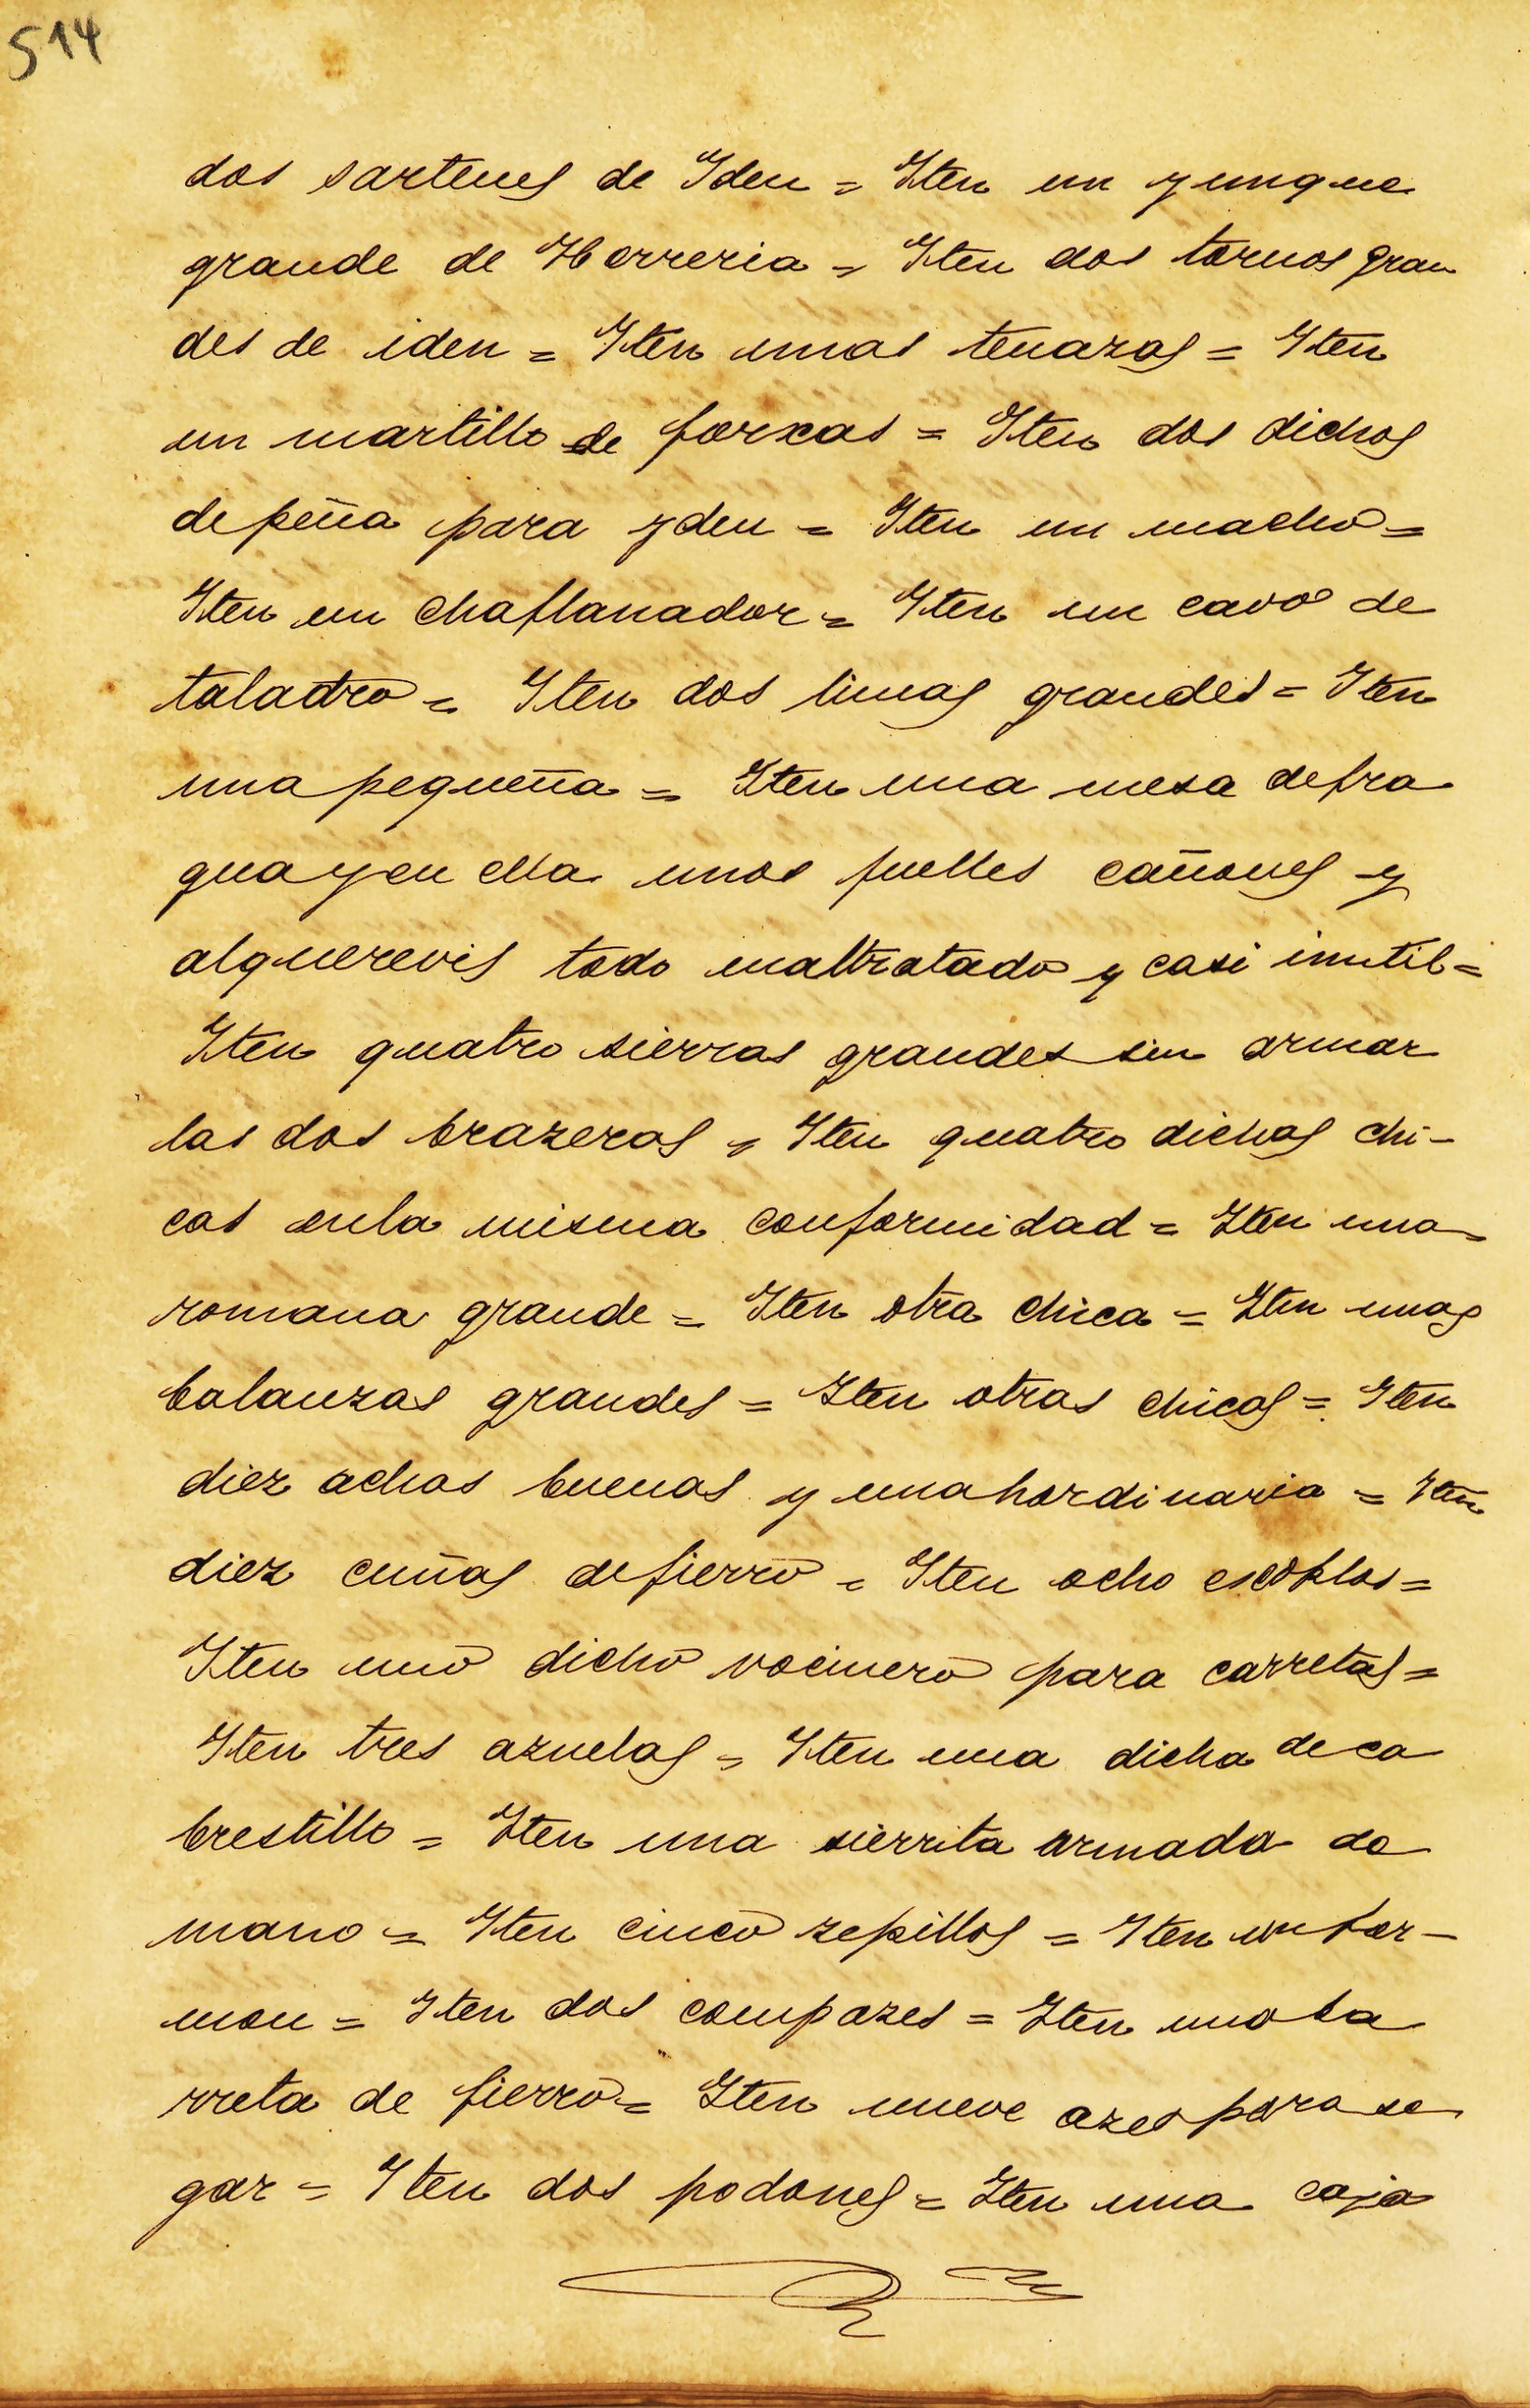 514
dos sartenes de Iden = Iten un yunque
grande de Herreria = Iten dos tornos gran
des de iden = Iten unas tenazas = Iten
un martillo de forxas = Iten dos dichos
de peña para yden = Iten un macho =
Iten un chaflanador = Iten un cavo de
taladro = Iten dos limas grandes = Iten
una pequeña = Iten una mesa de fra
gua y en ella unos fuelles cañones y
alquerevis todo maltratado y casi inutil =
Iten quatro sierras grandes sin armar
las dos brazeras = Iten quatro dichas chi-
cas en la misma conformidad = Iten una
romana grande = Iten otra chica = Iten unas
balanzas grandes = Iten otras chicas = Iten
diez achas buenas y una hordinaria = Iten
diez cuñas de fierro = Iten ocho escoplos =
Iten uno dicho vocinero para carretas =
Iten tres azuelas = Iten una dicha de ca
brestillo = Iten una sierrita armada de
mano = Iten cinco zepillos = Iten un for-
mon = Iten dos compazes = Iten una ba
rreta de fierro = Iten nueve azes para se
gar = Iten dos podones = Iten una caja